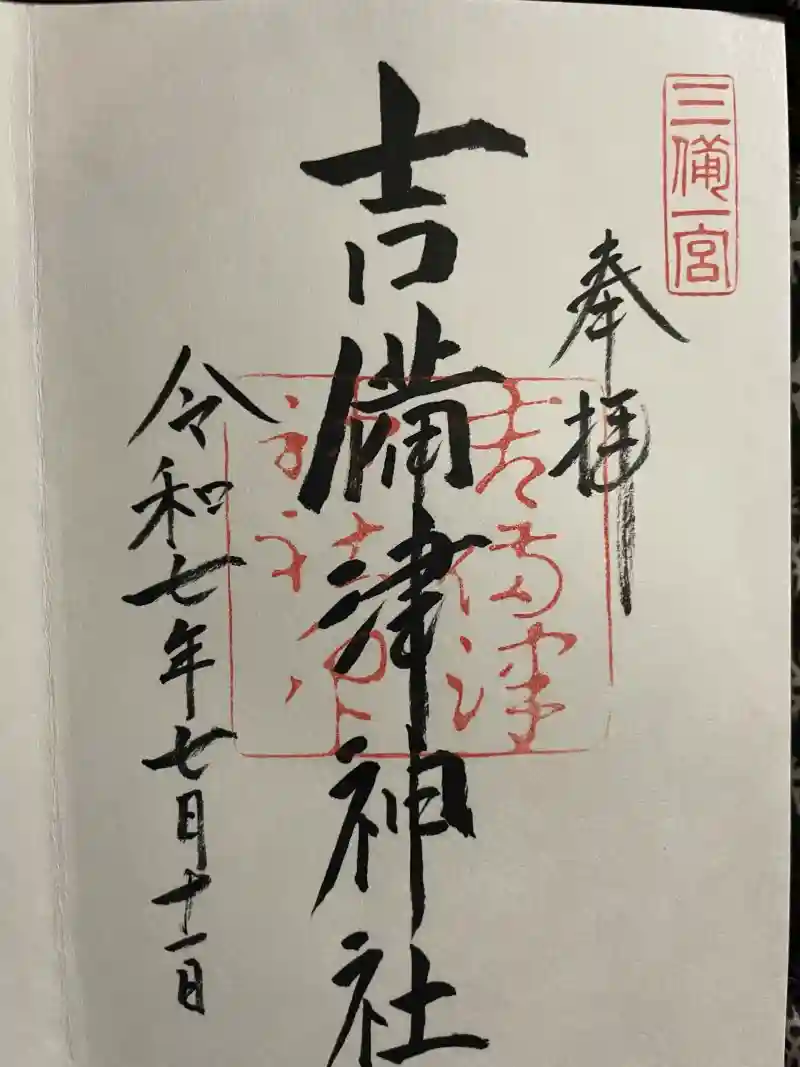 三備一宮
奉拝
吉備津神社
令和七年七月十一日
吉備津